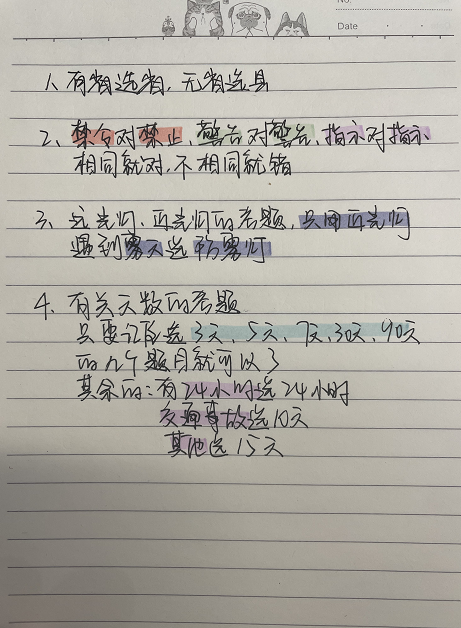 No.
Date
1、有省选省，无省选县
2、禁令对禁止，警告对警告，指示对指示
相同就对，不相同就错
3、远光灯、近光灯的考题，只用近光灯
遇到雾天选 防雾灯
4、有关天数的考题
只要记住选 3天、5天、7天、30天、90天
的几个题目就可以了
其余的：有24小时选24小时
交通事故选10天
其他选15天